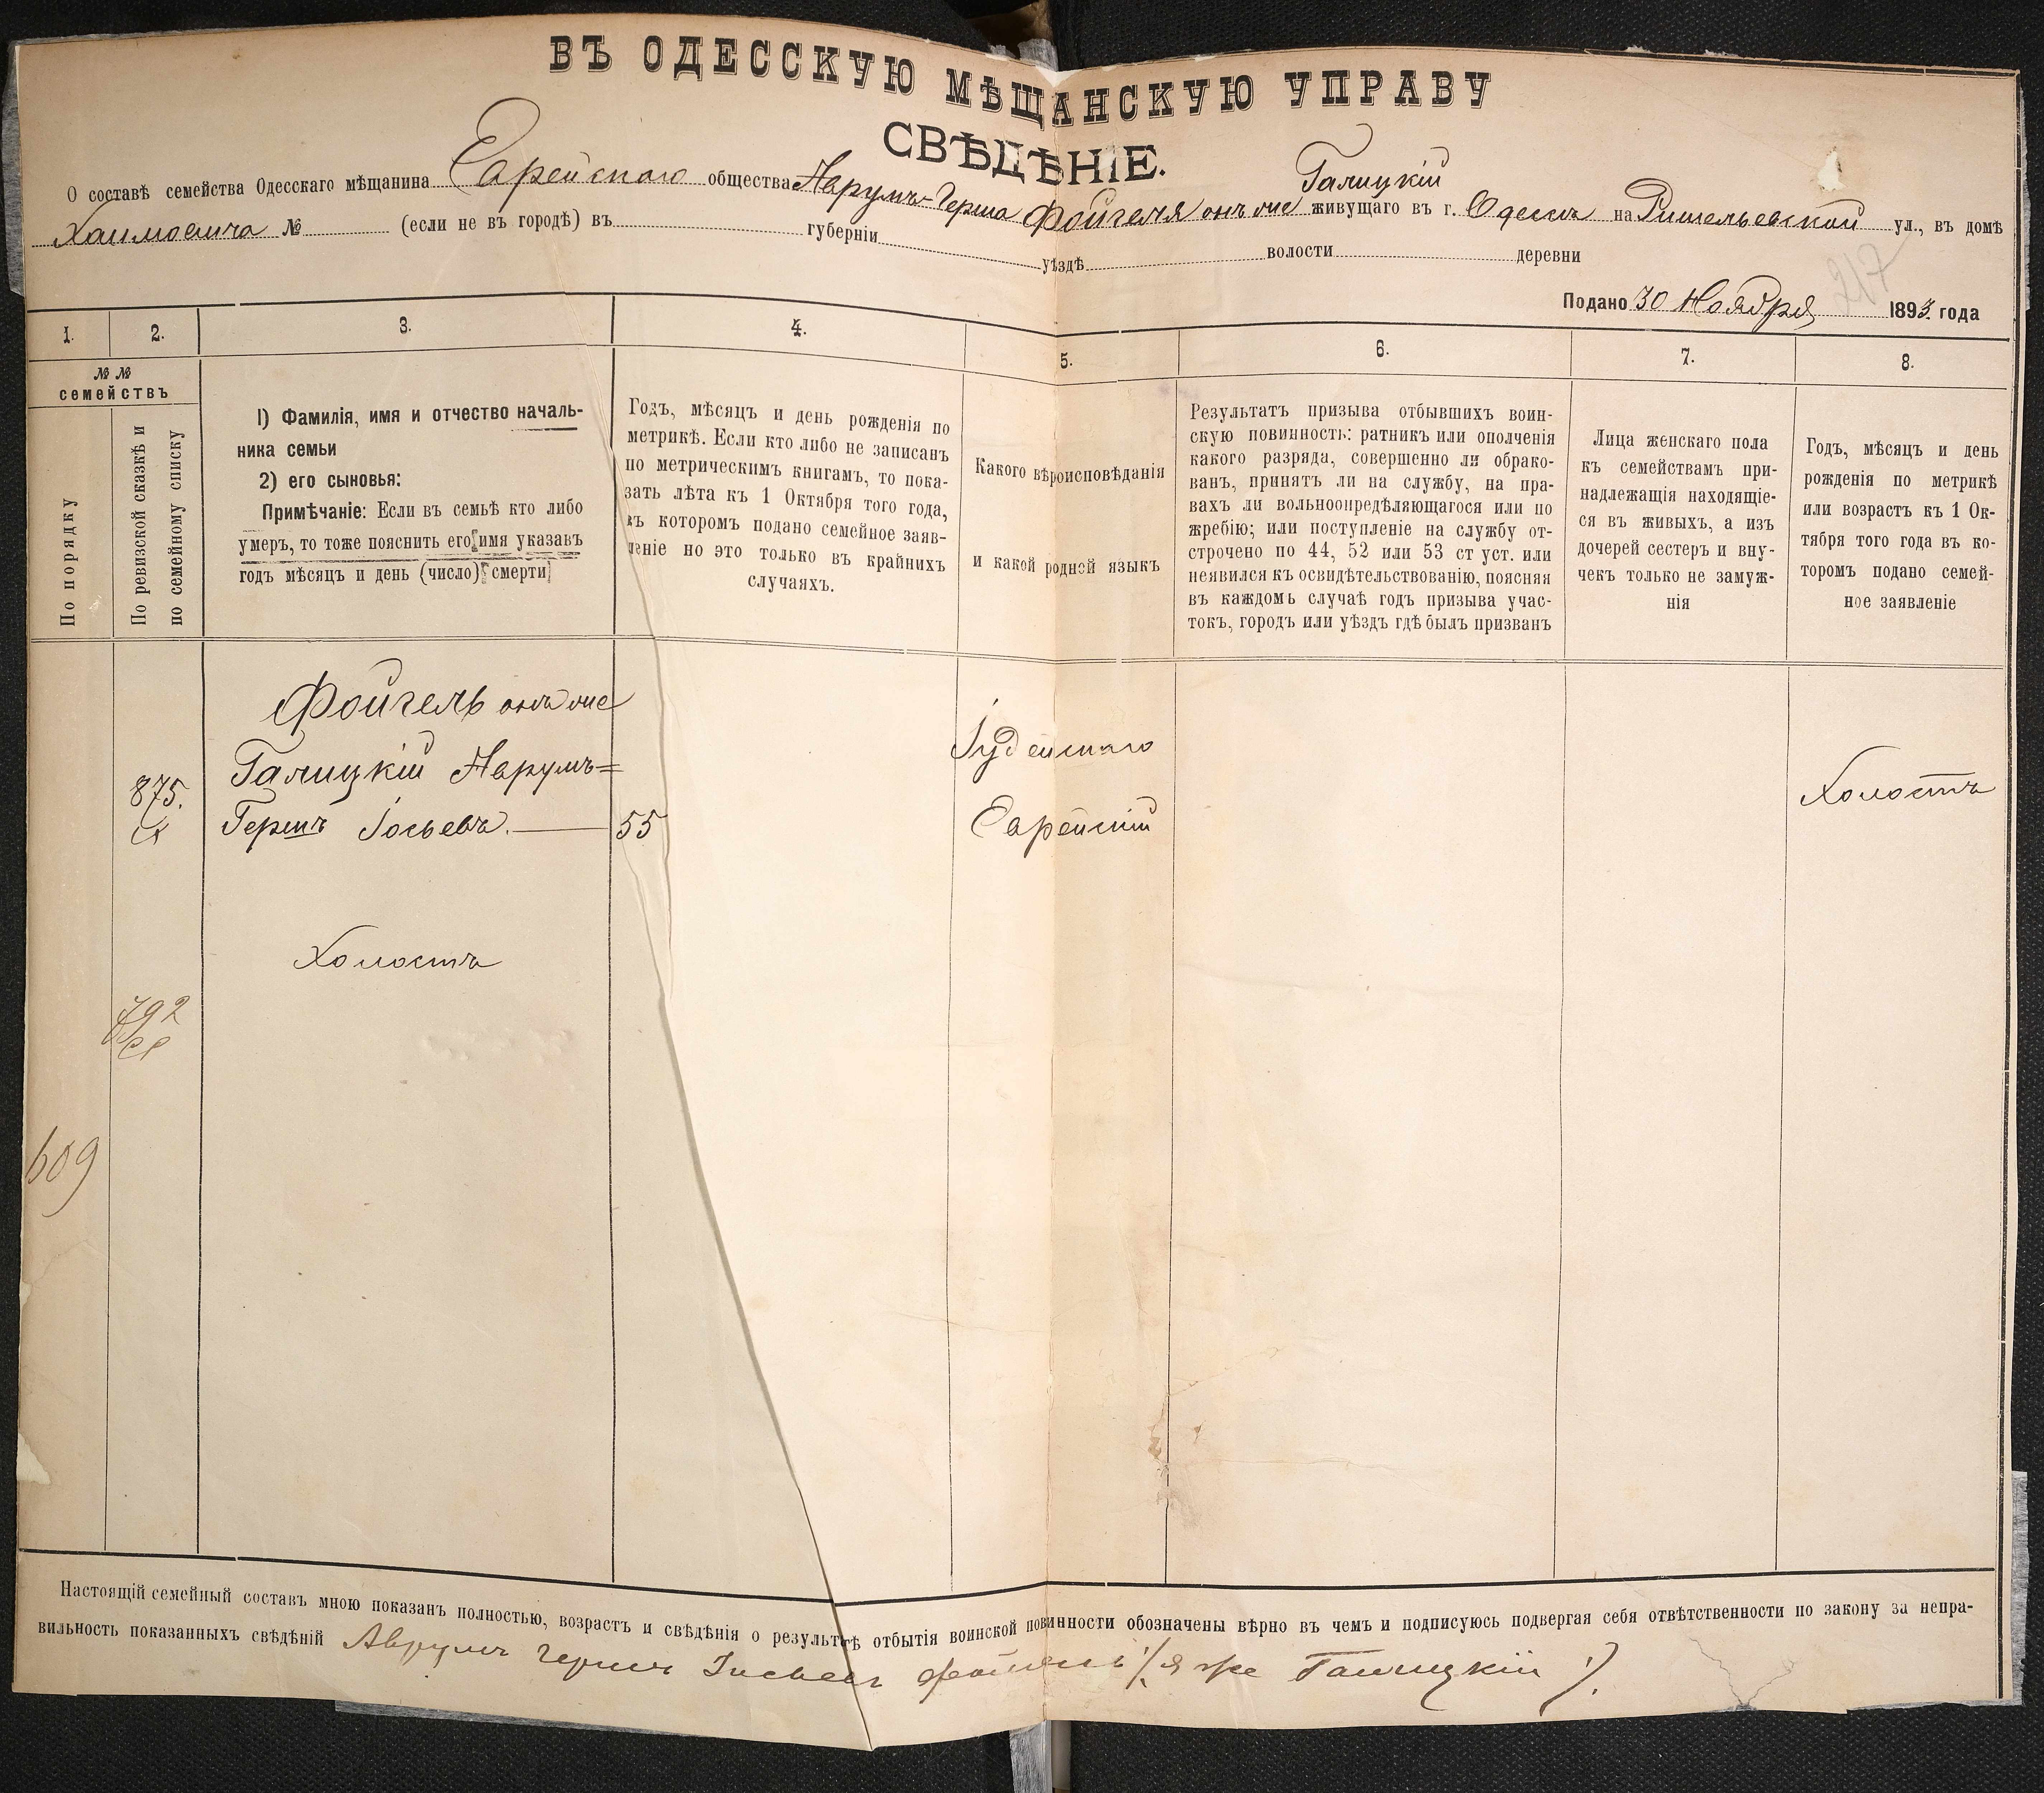 ВЪ ОДЕССКУЮ МѢЩАНСКУЮ УПРАВУ
СВѢДѢНІЕ.
О составѣ семейства Одесскаго мѣщанина Еврейскаго общества Аврумъ-Герша Фойгеля онъ же Галицкій живущаго въ г. Одессѣ на Ришельевской ул., въ домѣ
Хаимовича № (если не въ городѣ) въ губерніи уѣздѣ волости деревни
217
Подано 30 Ноября 1893 года
1. 2. 3. 4. 5. 6. 7. 8.
№ №
семействъ
По порядку
По ревизской сказкѣ и
по семейному списку
1) Фамилія, имя и отчество началь-
ника семьи
2) его сыновья:
Примѣчаніе: Если въ семьѣ кто либо
умеръ, то тоже пояснить его имя указавъ
годъ мѣсяцъ и день (число) смерти
Годъ, мѣсяцъ и день рожденія по
метрикѣ. Если кто либо не записанъ
по метрическимъ книгамъ, то пока-
зать лѣта къ 1 Октября того года,
въ которомъ подано семейное заяв-
леніе но это только въ крайнихъ
случаяхъ.
Какого вѣроисповѣданія
и какой родной языкъ
Результатъ призыва отбывшихъ воин-
скую повинность: ратникъ или ополченія
какого разряда, совершенно ли обрако-
ванъ, принятъ ли на службу, на пра-
вахъ ли вольноопредѣляющагося или по
жребію; или поступленіе на службу от-
строчено по 44, 52 или 53 ст уст. или
неявился къ освидѣтельствованію, поясняя
въ каждомъ случаѣ годъ призыва учас-
токъ, городъ или уѣздъ гдѣ былъ призванъ
Лица женскаго пола
къ семействамъ при-
надлежащія находящіе-
ся въ живыхъ, а изъ
дочерей сестеръ и вну-
чекъ только не замуж-
нія
Годъ, мѣсяцъ и день
рожденія по метрикѣ
или возрастъ къ 1 Ок-
тября того года въ ко-
торомъ подано семей-
ное заявленіе
Фойгель онъ же
Галицкій Аврумъ=
Гершъ Іосьевъ. 55
875.
Іудейскаго
Еврейскій
Холостъ
Холостъ
792
609
Настоящій семейный составъ мною показанъ полностью, возрастъ и свѣдѣнія о результатѣ отбытія воинской повинности обозначены вѣрно въ чемъ и подписуюсь подвергая себя отвѣтственности по закону за непра-
вильность показанныхъ свѣдѣній Аврумъ Гершъ Іосьевъ Фойгель (я же Галицкій).